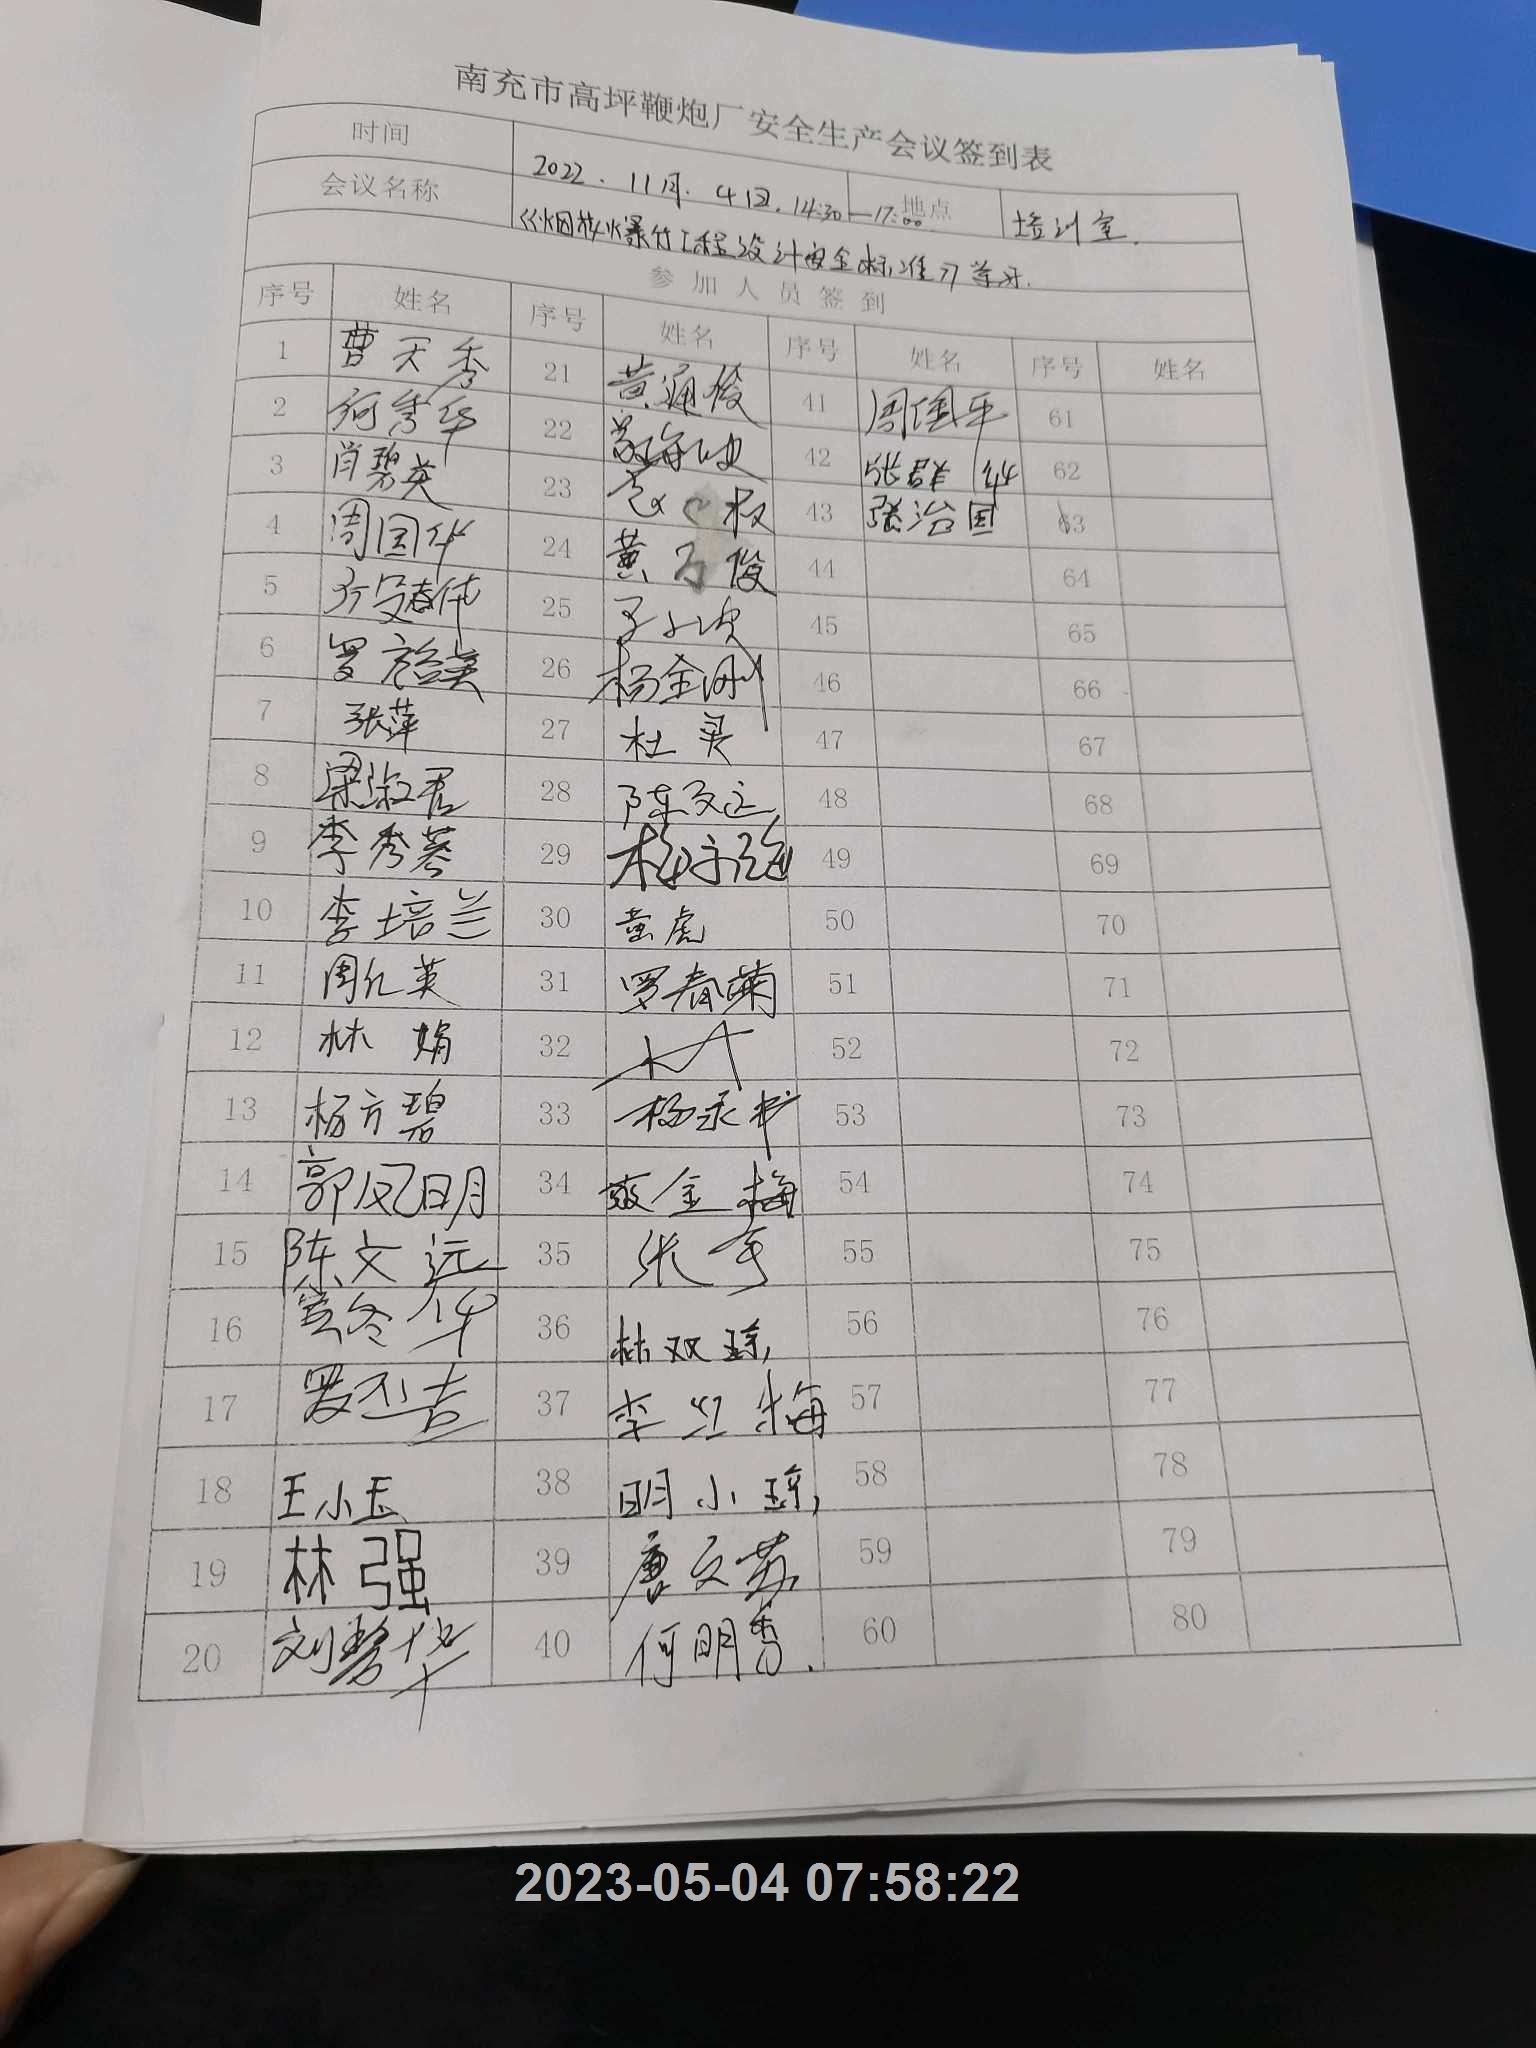 南充市高坪鞭炮厂安全生产会议签到表
时间 2022.11月.4日.14:30—17:00 地点 培训室.
会议名称 《烟花爆竹工程设计安全标准》学习.
参加人员签到
序号 姓名 序号 姓名 序号 姓名 序号 姓名
1 曹天秀 21 黄通俊 41 周国平 61
2 何秀华 22 42 张群华 62
3 肖碧英 23 43 张治国 63
4 周国华 24 黄万俊 44 64
5 25 45 65
6 罗 26 杨金刚 46 66
7 张萍 27 杜灵 47 67
8 梁淑君 28 陈文远 48 68
9 李秀蓉 29 49 69
10 李培兰 30 黄虎 50 70
11 周仁英 31 罗春菊 51 71
12 林娟 32 52 72
13 杨方碧 33 杨永 53 73
14 郭凤明 34 金梅 54 74
15 陈文远 35 张 55 75
16 冬华 36 林双琼 56 76
17 罗 37 李红梅 57 77
18 王小玉 38 明小琼 58 78
19 林强 39 唐文 59 79
20 刘 华 40 何明秀. 60 80
2023-05-04 07:58:22